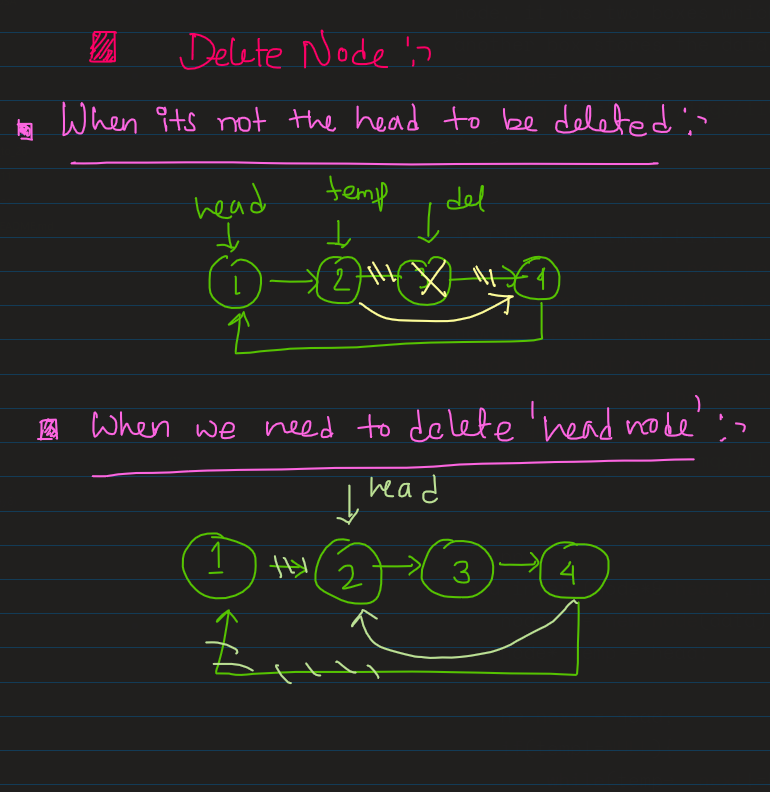 Delete Node :-
When its not the head to be deleted :-
head temp del
1 2 3 4
When we need to delete 'head node' :-
head
1 2 3 4